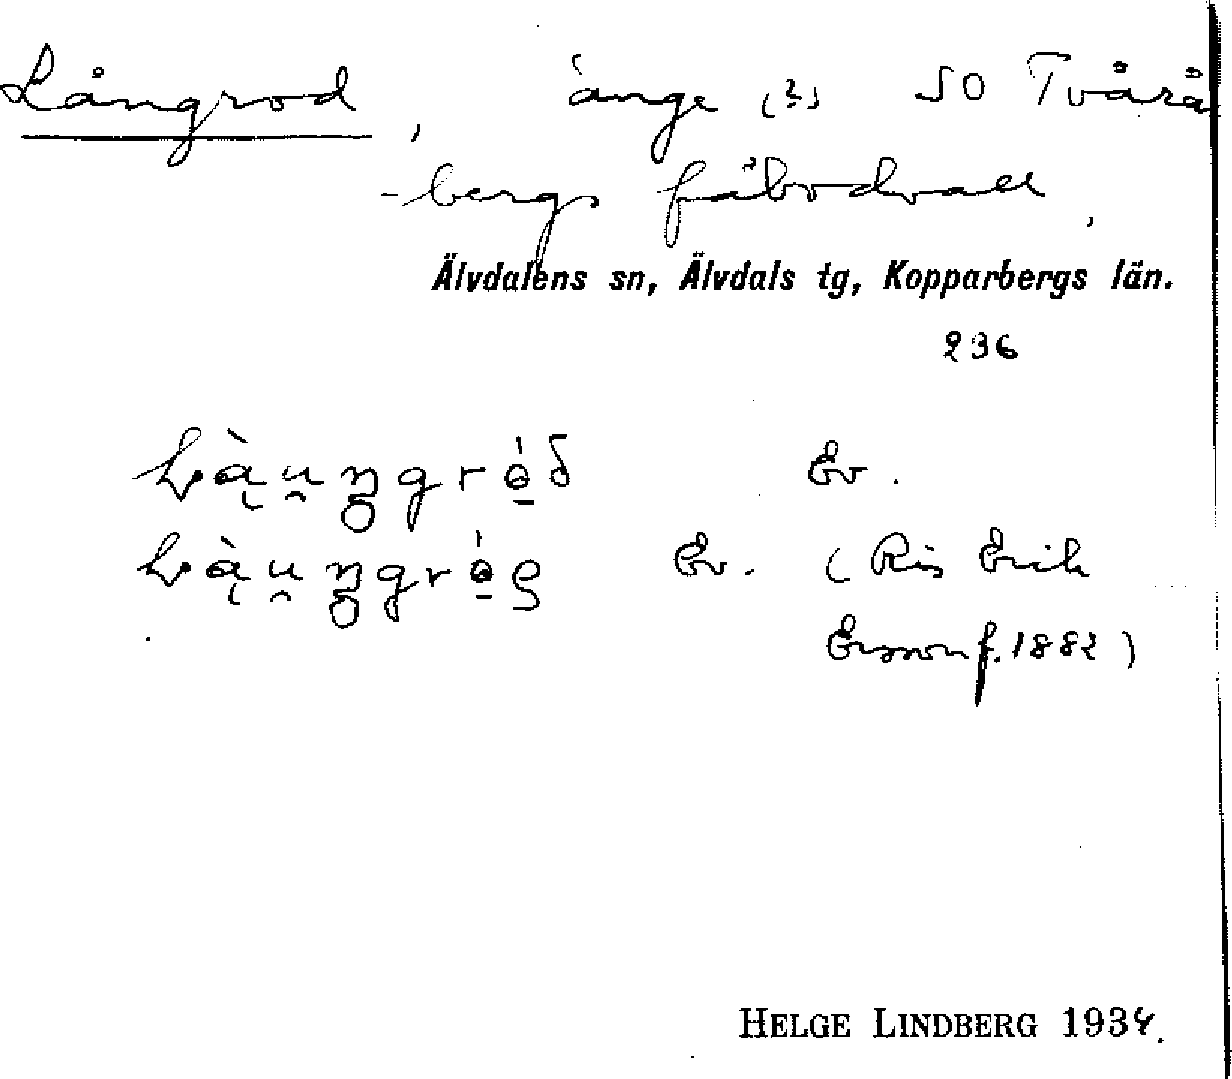 Långrod, änge (?) SO Tvärå
-bergs fäbodvall,
Älvdalens sn, Älvdals tg, Kopparbergs län.
236
Ev.
Ev. (Ris Erik
Ersson f. 1882)
HELGE LINDBERG 1934.